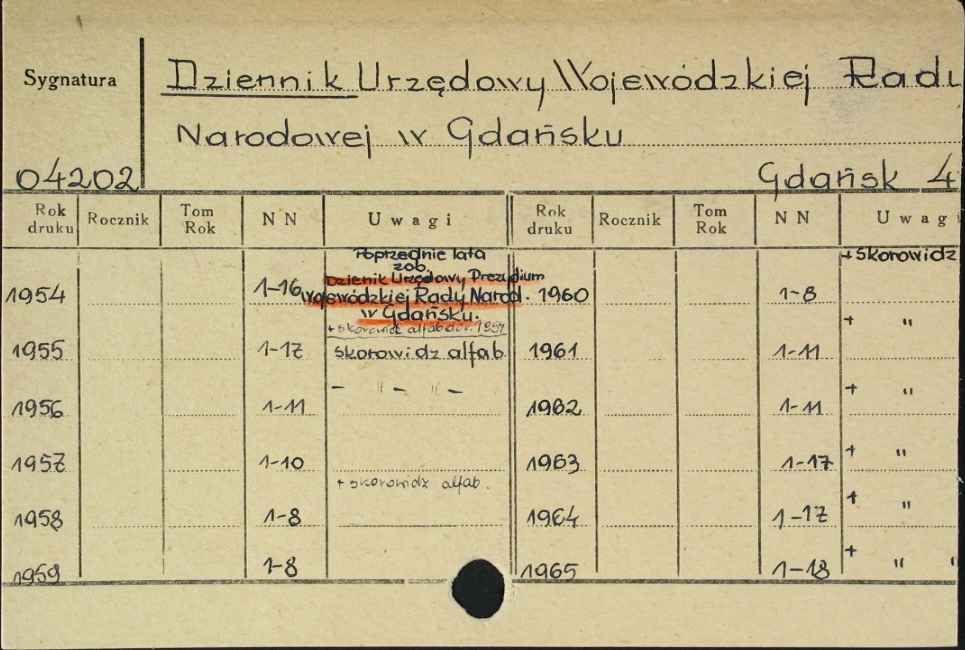 Sygnatura
Dziennik Urzędowy Wojewódzkiej Rady
Narodowej w Gdańsku
04202
Gdańsk 4
Rok druku Rocznik Tom Rok NN Uwagi Rok druku Rocznik Tom Rok NN Uwagi
Poprzednie lata
zob.
Dzienik Urzędowy Prezydium
Wojewódzkiej Rady Narod.
w Gdańsku.
1954 1-16 1960 1-8 + skorowidz
+ skorowidz alfab do r. 1954
1955 1-17 skorowidz alfab 1961 1-11 + "
1956 1-11 - " - " - 1962 1-11 + "
1957 1-10 1963 1-17 + "
1958 1-8 + skorowidz alfab. 1964 1-17 + "
1959 1-8 1965 1-18 + " "